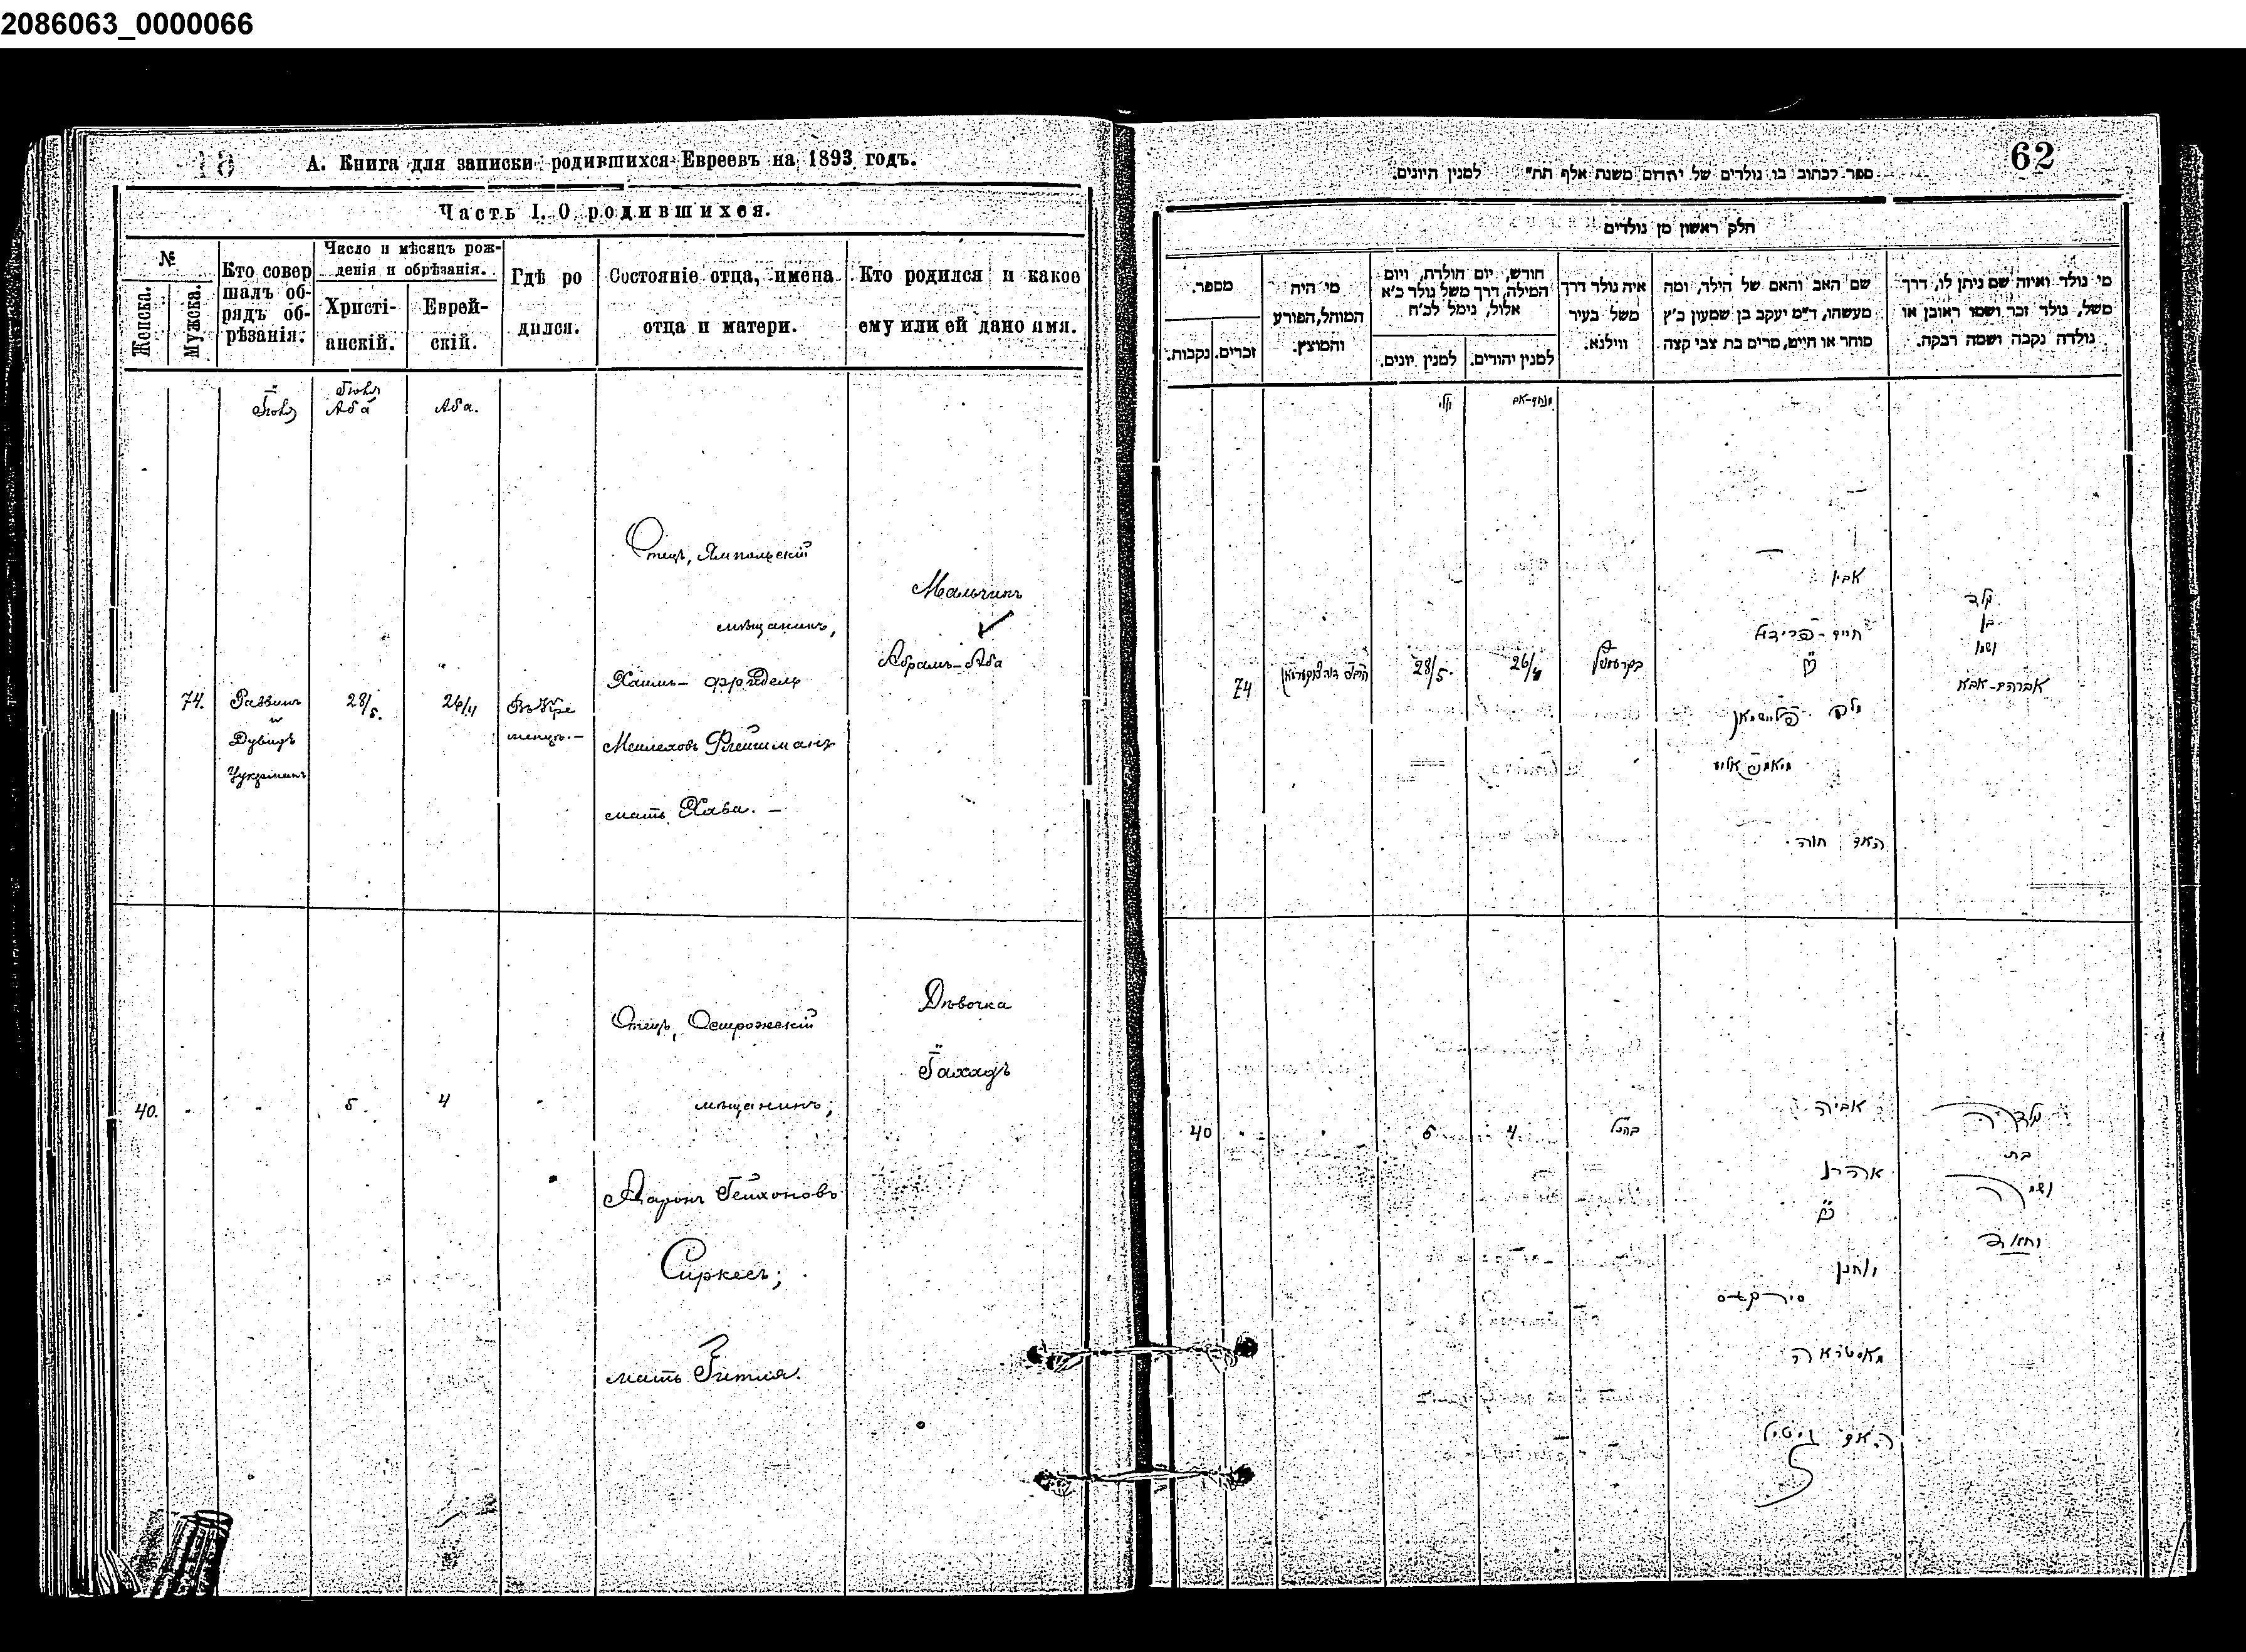 2086063_0000066
А. Книга для записки родившихся Евреевъ на 1893 годъ.
Часть I. О родившихся.
№
Женска.
Мужска.
Кто совер
шалъ об-
рядъ об-
рѣзанія.
Число и мѣсяцъ рож-
денія и обрѣзанія.
Христі-
анскій.
Еврей-
скій.
Гдѣ ро
дился.
Состояніе отца, имена
отца и матери.
Кто родился и какое
ему или ей дано имя.
Аба.
74.
Раввинъ
и
Дувидъ
28/5.
26/4
Въ Кре
менцѣ.-
Отецъ, Ямпольскій
мѣщанинъ,
Хаимъ-Фридель
Мейлеховъ Флейшманъ
мать Хава. -
Мальчикъ
Абрамъ-Аба
40.
-
-
5
4
-
Отецъ, Острожскій
мѣщанинъ;
Ааронъ
Сиркесъ;
мать Гитля.
Дѣвочка
62
ספר לכתוב בו נולדים של יהודום משנת אלף תת״ למנין היונים.
חלק ראשון מן נולדים
מספר.
נקבות.
זכרים.
מי היה
המוהל, הפורע
והמוצץ.
חורש, יום חולדת, ויום
המילה, דרך משל נולד כ׳א
אלול, נימל לכ׳ח
למנין יונים.
למנין יהודים.
איה נולד דרך
משל בעיר
ווילנא.
שם האב והאם של הילד, ומה
מעשהו, ד״מ יעקב בן שמעון כ׳ץ
סוחר או חייט, מרים בת צבי קצה
מי נולד ואיזה שם ניתן לו, דרך
משל, נולד זכר ושמו ראובן או
נולדה נקבה ושמה רבקה.
74
28/5.
26/4
אביו
חיים-פרידל
פליישמאן
האם חוה
נולד
בן
ושמו
אברהם-אבא
40
5
4
אביה
אהרן
סירקעס
האם גיטיל
נולדה
בת
ושמה